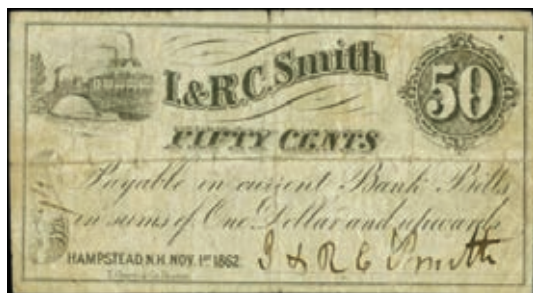 I. & R.C. Smith
50
FIFTY CENTS
Payable in current Bank Bills
in sums of One Dollar and upwards
HAMPSTEAD N.H. NOV. 1ST 1862
I & R C Smith